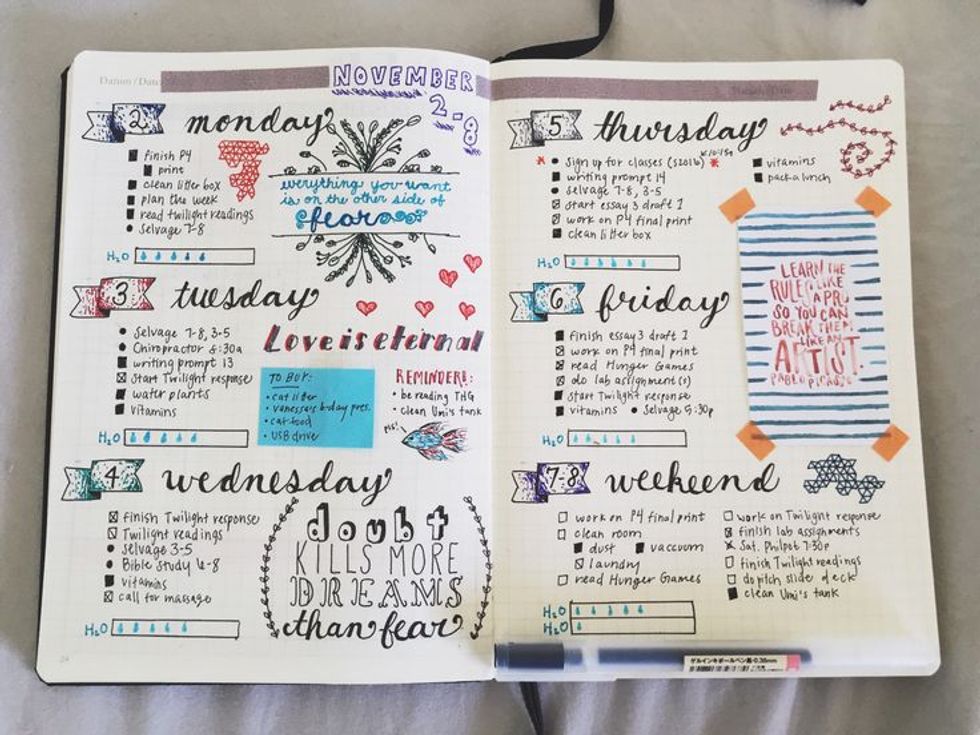 Datum / Date:
NOVEMBER
2-8
2 monday
finish P4
print
clean litter box
plan the week
read twilight readings
selvage 7-8
H2O
everything you want
is on the other side of
fear
3 tuesday
Selvage 7-8, 3-5
Chiropractor 8:30a
writing prompt 13
Start Twilight response
water plants
vitamins
H2O
Love is eternal
TO BUY:
• cat litter
• vanessa's b-day pres.
• cat food
• USB drive
REMINDER!:
• be reading THG
• clean Umi's tank
pls!
4 wednesday
finish Twilight response
Twilight readings
selvage 3-5
Bible Study 6-8
vitamins
call for massage
H2O
doubt
KILLS MORE
DREAMS
than fear
5 thursday
Sign up for classes (S2016)
writing prompt 14
selvage 7-8, 3-5
start essay 3 draft 1
work on P4 final print
clean litter box
vitamins
pack a lunch
H2O
LEARN THE
RULES LIKE
A PRO
SO YOU CAN
BREAK THEM
LIKE AN
ARTIST.
PABLO PICASSO
6 friday
finish essay 3 draft 1
work on P4 final print
read Hunger Games
do lab assignment(s)
start Twilight response
vitamins • selvage 9:30p
H2O
7-8 weekend
work on P4 final print
clean room
dust vaccuum
laundry
read Hunger Games
work on Twilight response
finish lab assignments
Sat. Philpot 7:30p
finish Twilight readings
do pitch slide deck
clean Umi's tank
H2O
H2O
ゲルインキボールペン黒・0.38mm